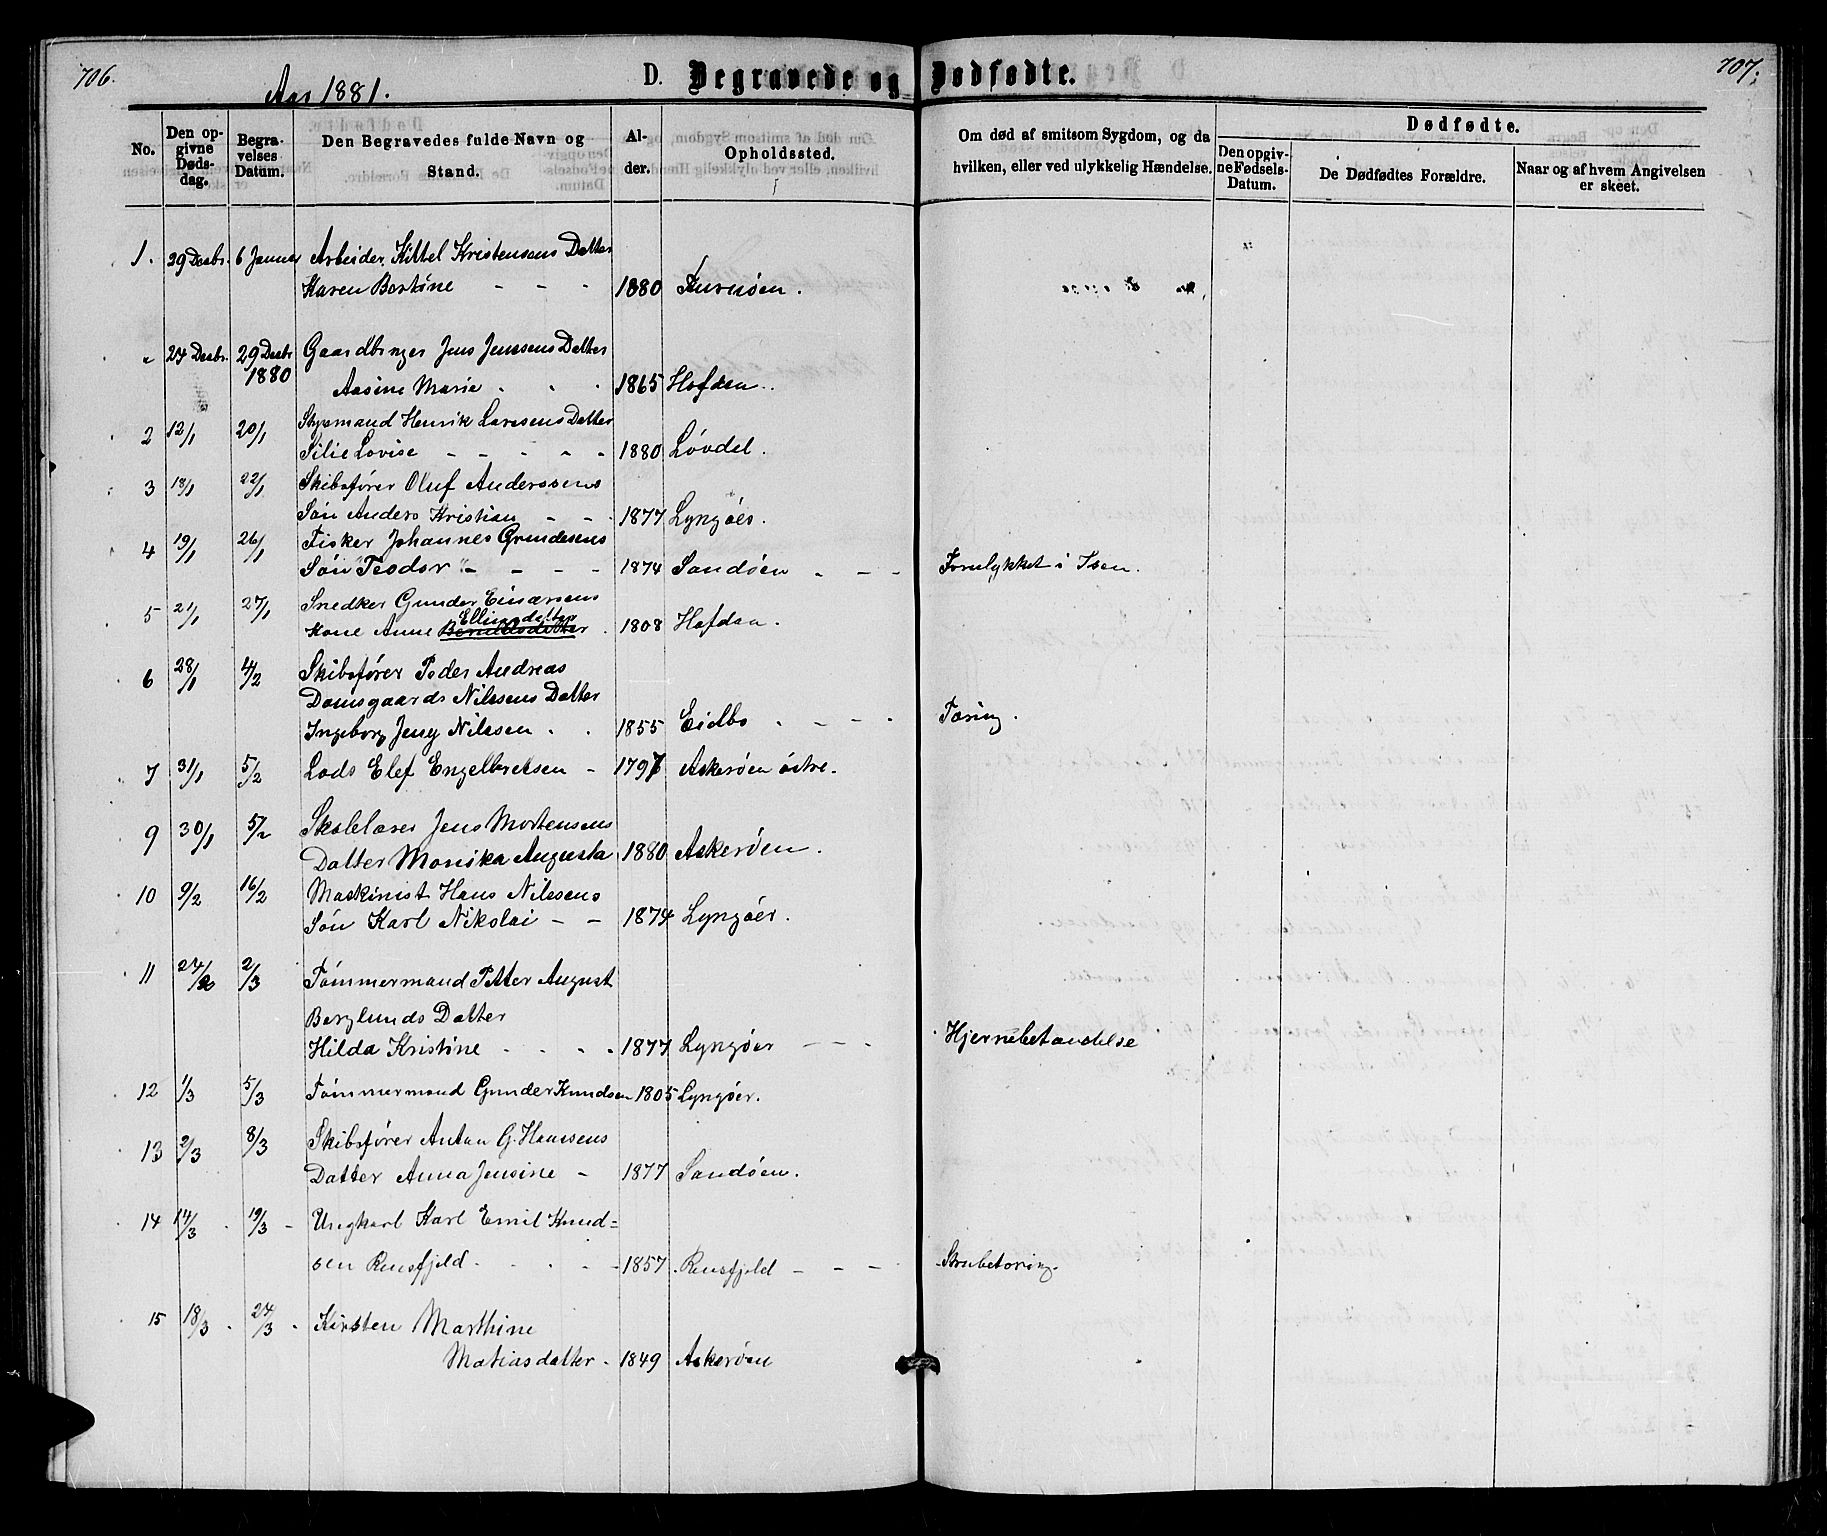 706.
Aar 1881.
D. Begravede og Dødfødte.
707.
No.
Den opgivne Dødsdag.
Begravelses Datum.
Den Begravedes fulde Navn og Stand.
Alder.
Opholdssted.
Om død af smitsom Sygdom, og da hvilken, eller ved ulykkelig Hændelse.
Dødfødte.
Den opgivne Fødsels-Datum.
De Dødfødtes Forældre.
Naar og af hvem Angivelsen er skeet.
1. 29 Decbr. 6 Januar Arbeider Kittel Kristensens Datter
Karen Bertine - - - 1880 Furuøen.
" 24 Decbr. 29 Decbr 1880 Gaardbruger Jens Jenssens Datter
Aasine Marie . . . 1865 Hafden.
2 12/1 20/1 Styrmand Henrik Larssens Datter
Silie Lovise - - - - - 1880 Løvdel.
3 18/1 22/1 Skibsfører Oluf Anderssens
Søn Anders Kristian - - 1877 Lyngøer.
4 19/1 26/1 Fisker Johannes Gundersens
Søn "Teodor" - - - - 1874 Sandøen - - - Forulykket i Isen.
5 21/1 27/1 Snedker Gunder Einarsens
Ellingsdatter
Kone Anne . 1808 Hafdan.
6 28/1 4/2 Skibsfører Peder Andreas
Domsgaards Nilssens Datter
Ingeborg Jeny Nilssen . . 1855 Eidbo . - - - Tæring.
7 31/1 5/2 Lods Elef Engelbretsen - 1797 Askerøen østre.
9 30/1 5/2 Skolelærer Jens Mortensens
Datter Monika Augusta 1880 Askerøen.
10 9/2 16/2 Maskinist Hans Nilssens
Søn Karl Nikolai - - 1874 Lyngøer.
11 24/2 2/3 Tømmermand Petter August
Berglunds Datter
Hilda Kristine - . . . 1877 Lyngøer - - - Hjernebetændelse
12 1/3 5/3 Tømmermand Gunder Knudsen 1805 Lyngøer.
13 2/3 8/3 Skibsfører Anton G. Hanssens
Datter Anna Jensine - 1877 Sandøen.
14 14/3 - 19/3 - Ungkarl Karl Emil Knud=
sen Rensfjeld - . . . - 1857 Rensfjeld - - - Strubetæring.
15 18/3 . 24/3 . Kirsten Marthine
Matiasdatter - 1849 Askerøen